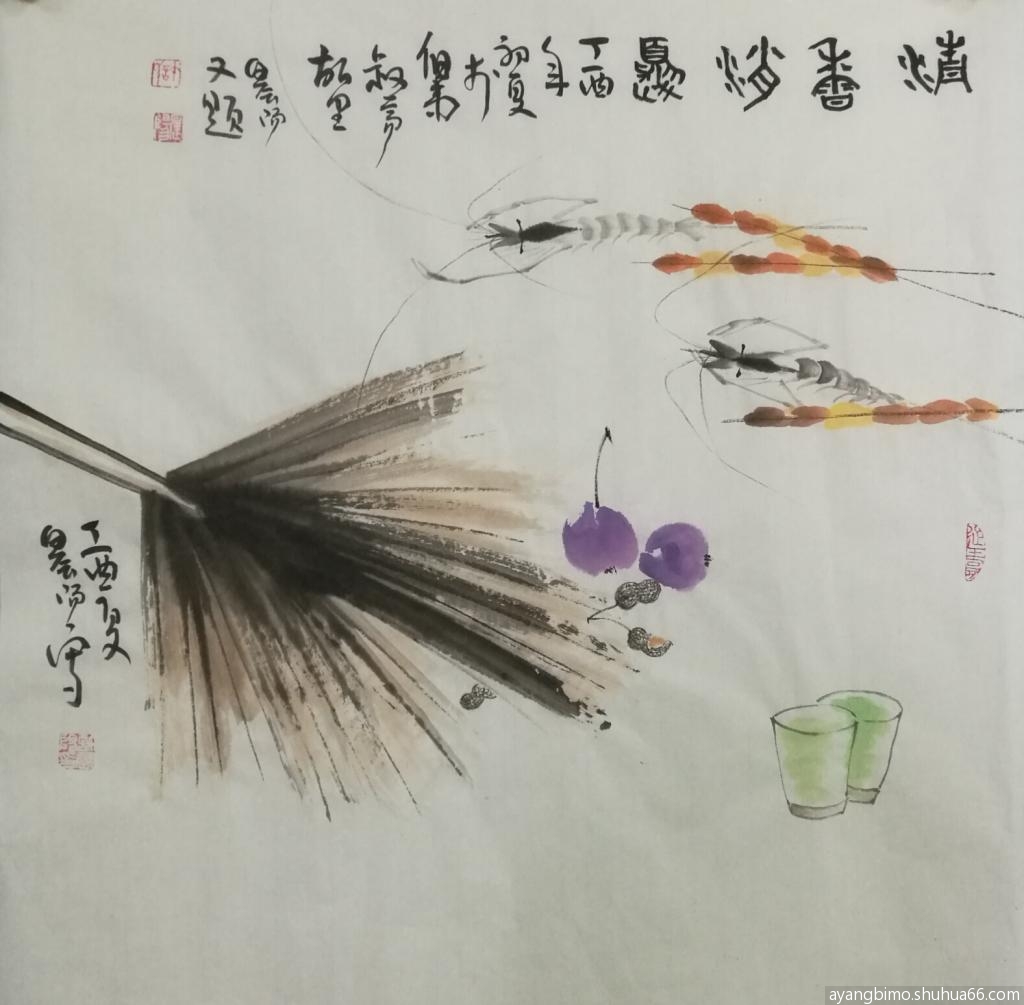 清香消夏丁酉年初夏於故里晨阳又题
丁酉夏
晨阳写
ayangbimo.shuhua66.com